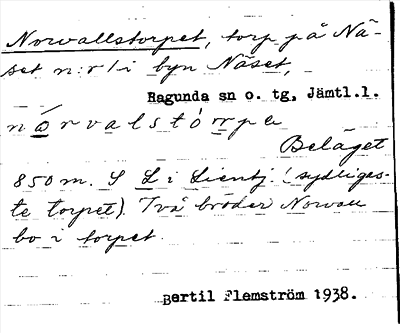 Norvallstorpet, torp på Nä-
set n:r 1 i byn Näset,
Ragunda sn o. tg, Jämtl.l.
nọrvalstórpe
Beläget
850 m. S L i Lientj. (sydligas-
te torpet). Två bröder Norvall
bo i torpet.
Bertil Flemström 1938.